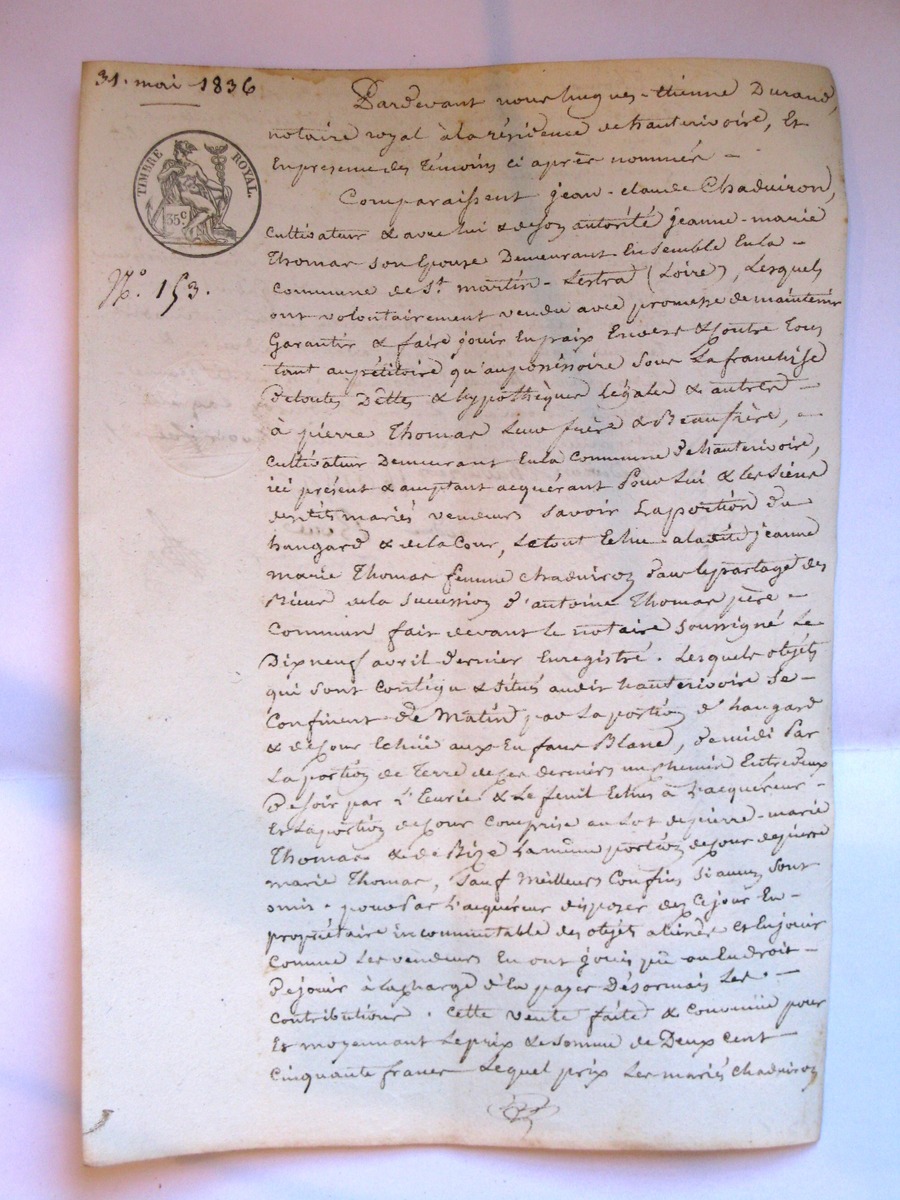 31. mai 1836
TIMBRE ROYAL.
35c
N.o 153.
Pardevant nous hugues-étienne Durand,
notaire royal à la résidence de hauterivoire, Et
En presence des Témoins ci après nommés -
Comparaissent jean-claude Chaduiron,
Cultivateur & avec lui & de son autorité jeanne-marie
Thomas son Epouse Demeurant Ensemble En la -
Commune de St. martin-Lestra (Loire), Lesquels
ont volontairement vendu avec promesse de maintenir
Garantir & faire jouir En paix Envers & Contre Tous
tant au pétitoire qu'au possessoire Sous La franchise
de toutes Dettes & hypothèques Légales & autres -
à pierre Thomas Leur frère & Beaufrère, -
Cultivateur Demeurant En la Commune d'hauterivoire,
ici présent & acceptant acquérant Pour Lui & les Siens
desdits mariés vendeurs Savoir La portion du
hangard & de la Cour, Le tout Echu a ladite jeanne
marie Thomas femme chaduiron dans le partage des
Biens de la Succession d'antoine Thomas père -
Commun fait devant le notaire soussigné Le
Dix neuf avril dernier Enregistré. Lesquels objets
qui sont Contigu & situés audit hauterivoire Se -
Confinent de Matin par La portion d'hangard
& de Cour Echüe aux Enfans Blanc, de midi Par
La portion de Terre de ces derniers un chemin Entredeux
de soir par l'Ecurie & Le fenil Echus à L'acquéreur -
Et La portion de Cour Comprise au Lot de pierre-marie
Thomas & de Bize La même portion de Cour de pierre
marie Thomas, Sauf Meilleurs Confins Si aucuns Sont
omis. pour Par L'acquéreur disposer dès Ce jour En -
propriétaire incommutable des objets aliénés Et En jouir
Comme Les vendeurs En ont joui pû ou En droit -
de jouir à La charge d'En payer Désormais Les -
Contributions. Cette vente faite & Convenüe pour
Et moyennant Le prix & Somme de Deux Cent
Cinquante francs Lequel prix Les mariés Chaduiron